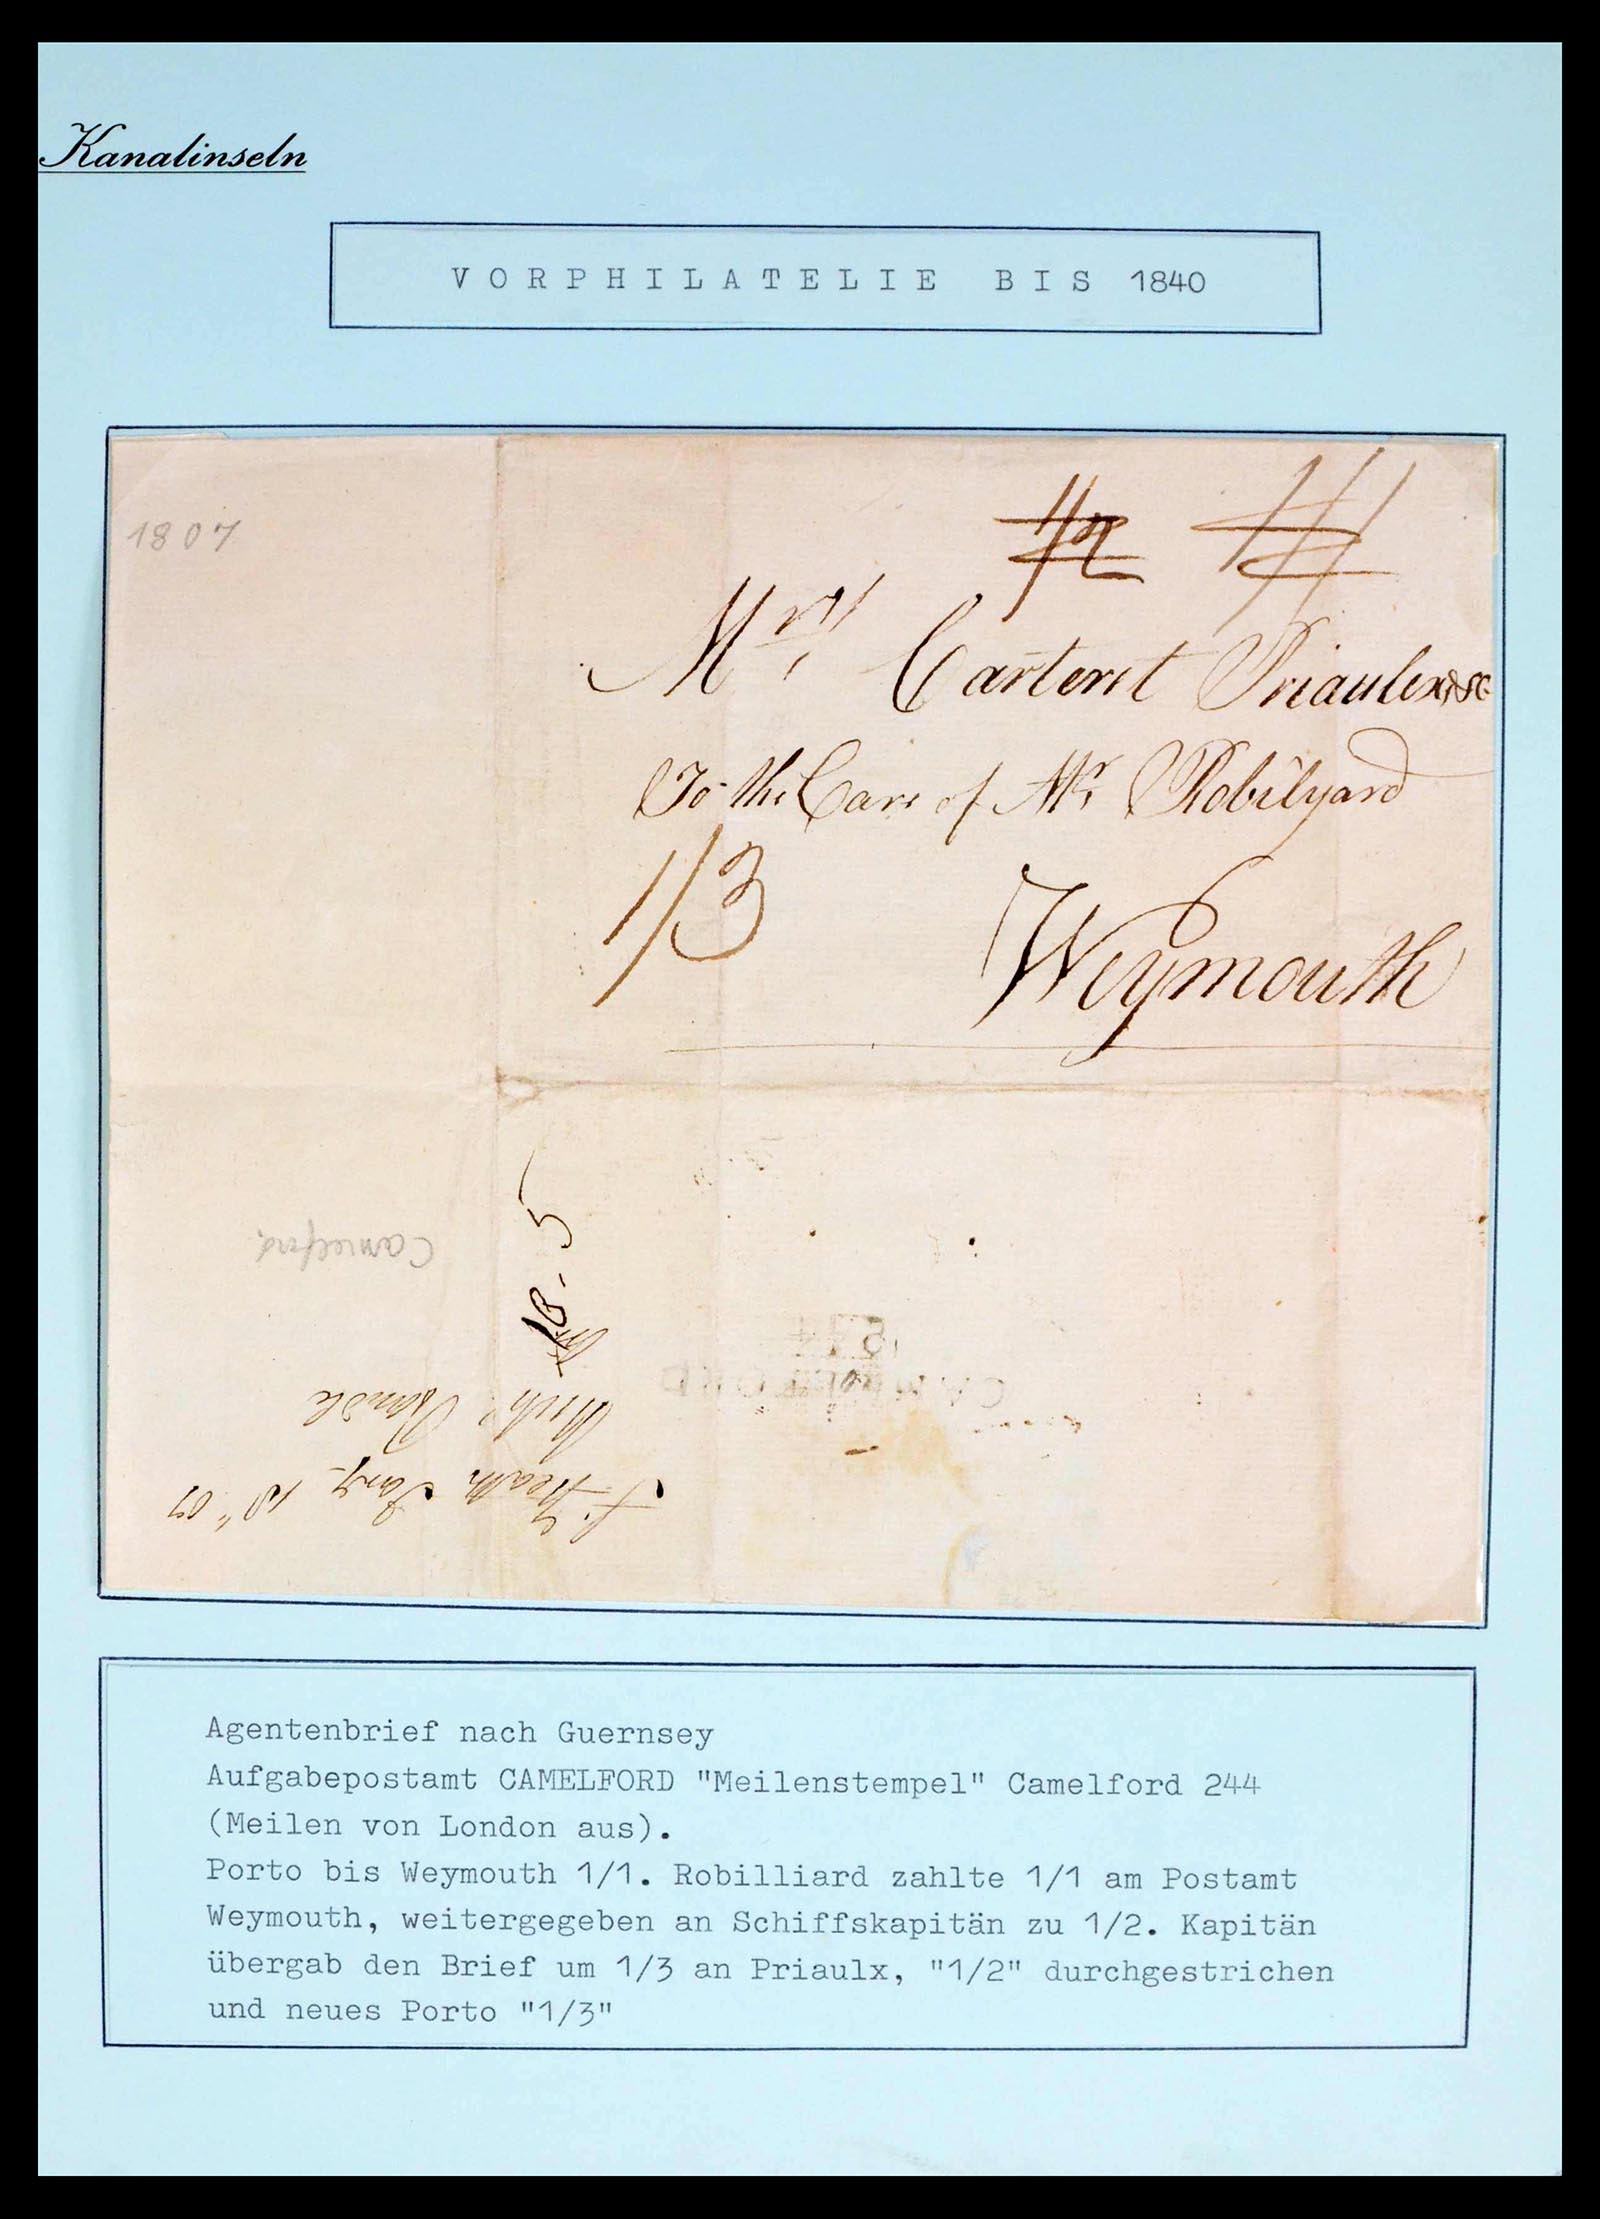 Kanalinseln
VORPHILATELIE BIS 1840
1807
1/2 1/1
Mrs Carteret Priaulx & Co
To the Care of Mr Robilyard
1/3
Weymouth
Camelford
CAMELFORD
Agentenbrief nach Guernsey
Aufgabepostamt CAMELFORD "Meilenstempel" Camelford 244
(Meilen von London aus).
Porto bis Weymouth 1/1. Robilliard zahlte 1/1 am Postamt
Weymouth, weitergegeben an Schiffskapitän zu 1/2. Kapitän
übergab den Brief um 1/3 an Priaulx, "1/2" durchgestrichen
und neues Porto "1/3"